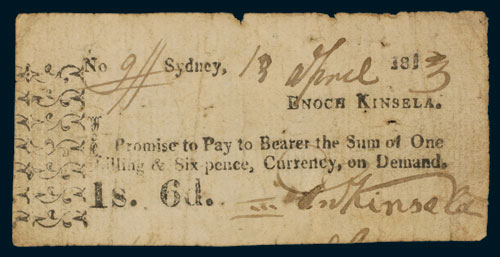 No 9 Sydney, 18 April 1813
ENOCH KINSELA.
Promise to Pay to Bearer the Sum of One
hilling & Six-pence, Currency, on Demand.
1s. 6d. Kinsela